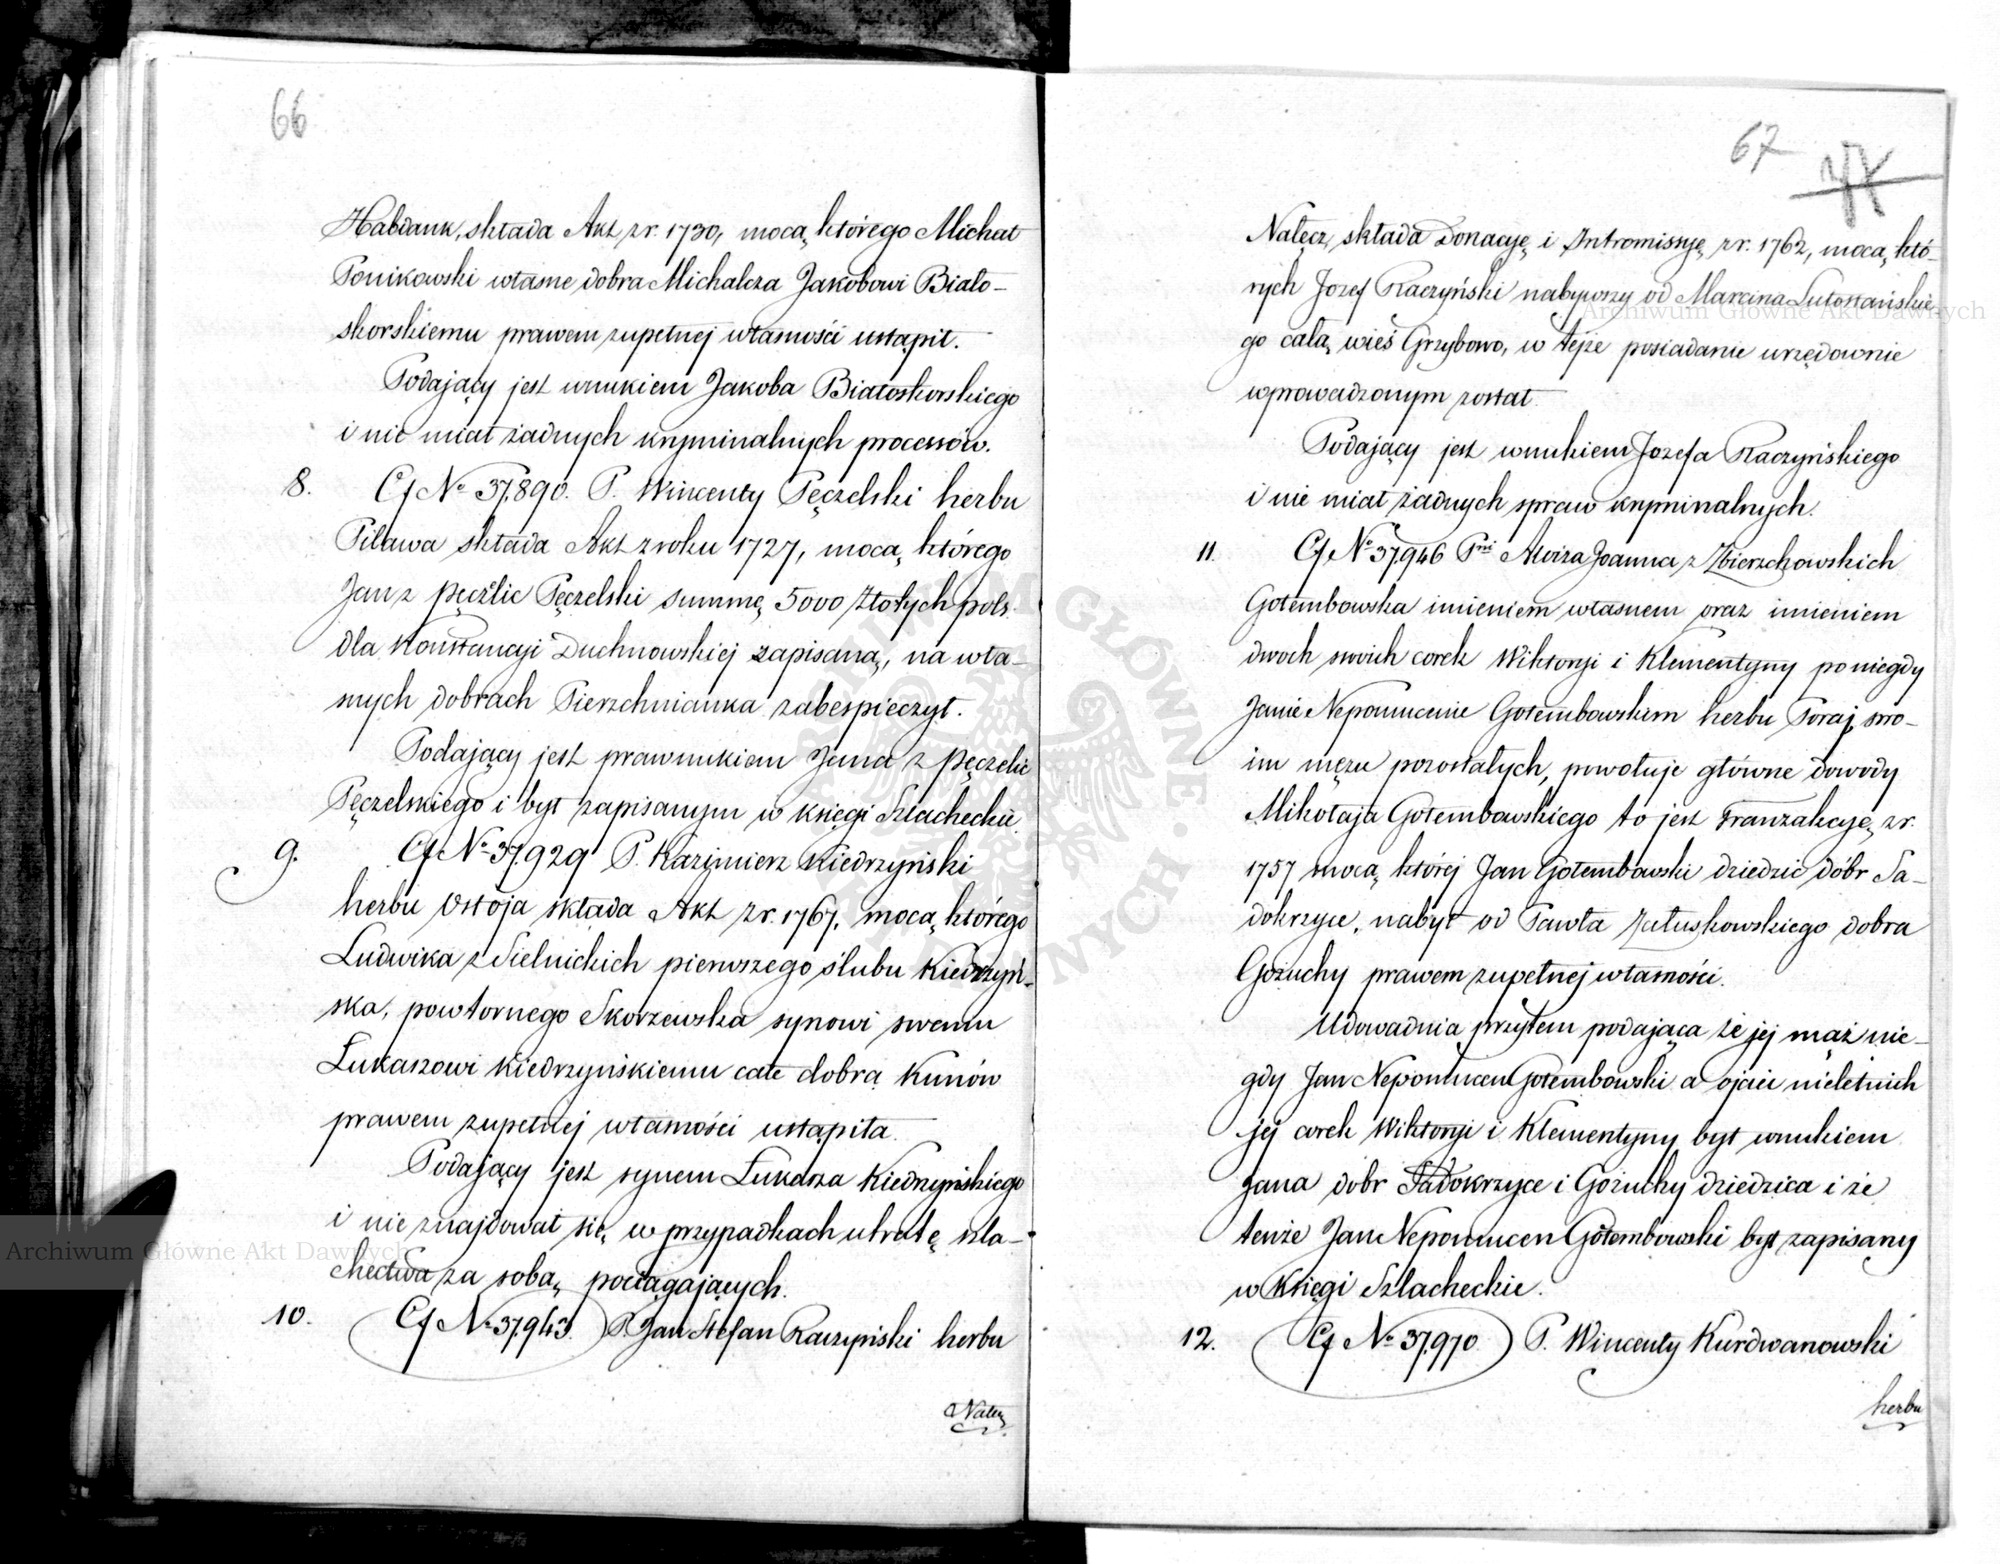 66
Habdank, składa Akt z r. 1730, mocą którego Michał
Ponikowski własne dobra Michalcza Jakobowi Biało-
skorskiemu prawem zupełnej własności ustąpił.
Podający jest wnukiem Jakoba Białoskorskiego
i nie miał żadnych kryminalnych processów.
8. Cf No 37.890. P. Wincenty Pęczelski herbu
Pilawa składa Akt z roku 1727, mocą którego
Jan z Pęczlic Pęczelski summę 5000 Złotych pols.
dla Konstancji Duchnowskiej zapisaną, na wła-
snych dobrach Pierzchnianka zabespieczył.
Podający jest prawnukiem Jana z Pęczelic
Pęczelskiego i był zapisanym w księgi Szlacheckie.
9. Cf No 37.929 P. Kazimierz Kiedrzyński
herbu Ostoja składa Akt z r. 1767, mocą którego
Ludwika z Sielnickich pierwszego ślubu Kiedrzyń-
ska, powtornego Skorzewska synowi swemu
Łukaszowi Kiedrzyńskiemu całe dobra Kunów
prawem zupełnej własności ustąpiła.
Podający jest synem Łukasza Kiedrzyńskiego
i nie znajdował się w przypadkach utratę szla-
chectwa za sobą pociągających.
10. Cf No 37.943. P. Jan Stefan Raczyński herbu
Nałęcz
67
Nałęcz, składa Donacyę i Intromissyę z r. 1762, mocą któ-
rych Jozef Raczyński nabywszy od Marcina Lutomańskie
go całą wieś Grzybowo, w tejże posiadanie urzędownie
wprowadzonym został.
Podający jest wnukiem Jozefa Raczyńskiego
i nie miał żadnych spraw kryminalnych.
11. Cf No 37.946 Pni Aloiza Joanna z Zbierzchowskich
Gołembowska imieniem własnem oraz imieniem
dwoch swoich corek Wiktoryi i Klementyny po niegdy
Janie Nepomucenie Gołembowskim herbu Poraj, swo-
im mężu pozostałych, powołuje główne dowody
Mikołaja Gołembowskiego to jest Tranzakcyę z r.
1757 mocą której Jan Gołembowski dziedzic dóbr Sa-
dokrzyce, nabył od Pawła Załuskowskiego dobra
Gożuchy prawem zupełnej własności.
Udowadnia przytem podająca że jej mąż nie-
gdy Jan Nepomucen Gołembowski a ojciec nieletnich
jej corek Wiktoryi i Klementyny był wnukiem
Jana dobr Sadokrzyce i Gożuchy dziedzica i że
tenże Jan Nepomucen Gołembowski był zapisany
w Księgi Szlacheckie.
12. Cf No 37.970 P. Wincenty Kurdwanowski
herbu
Archiwum Główne Akt Dawnych
Archiwum Główne Akt Dawnych